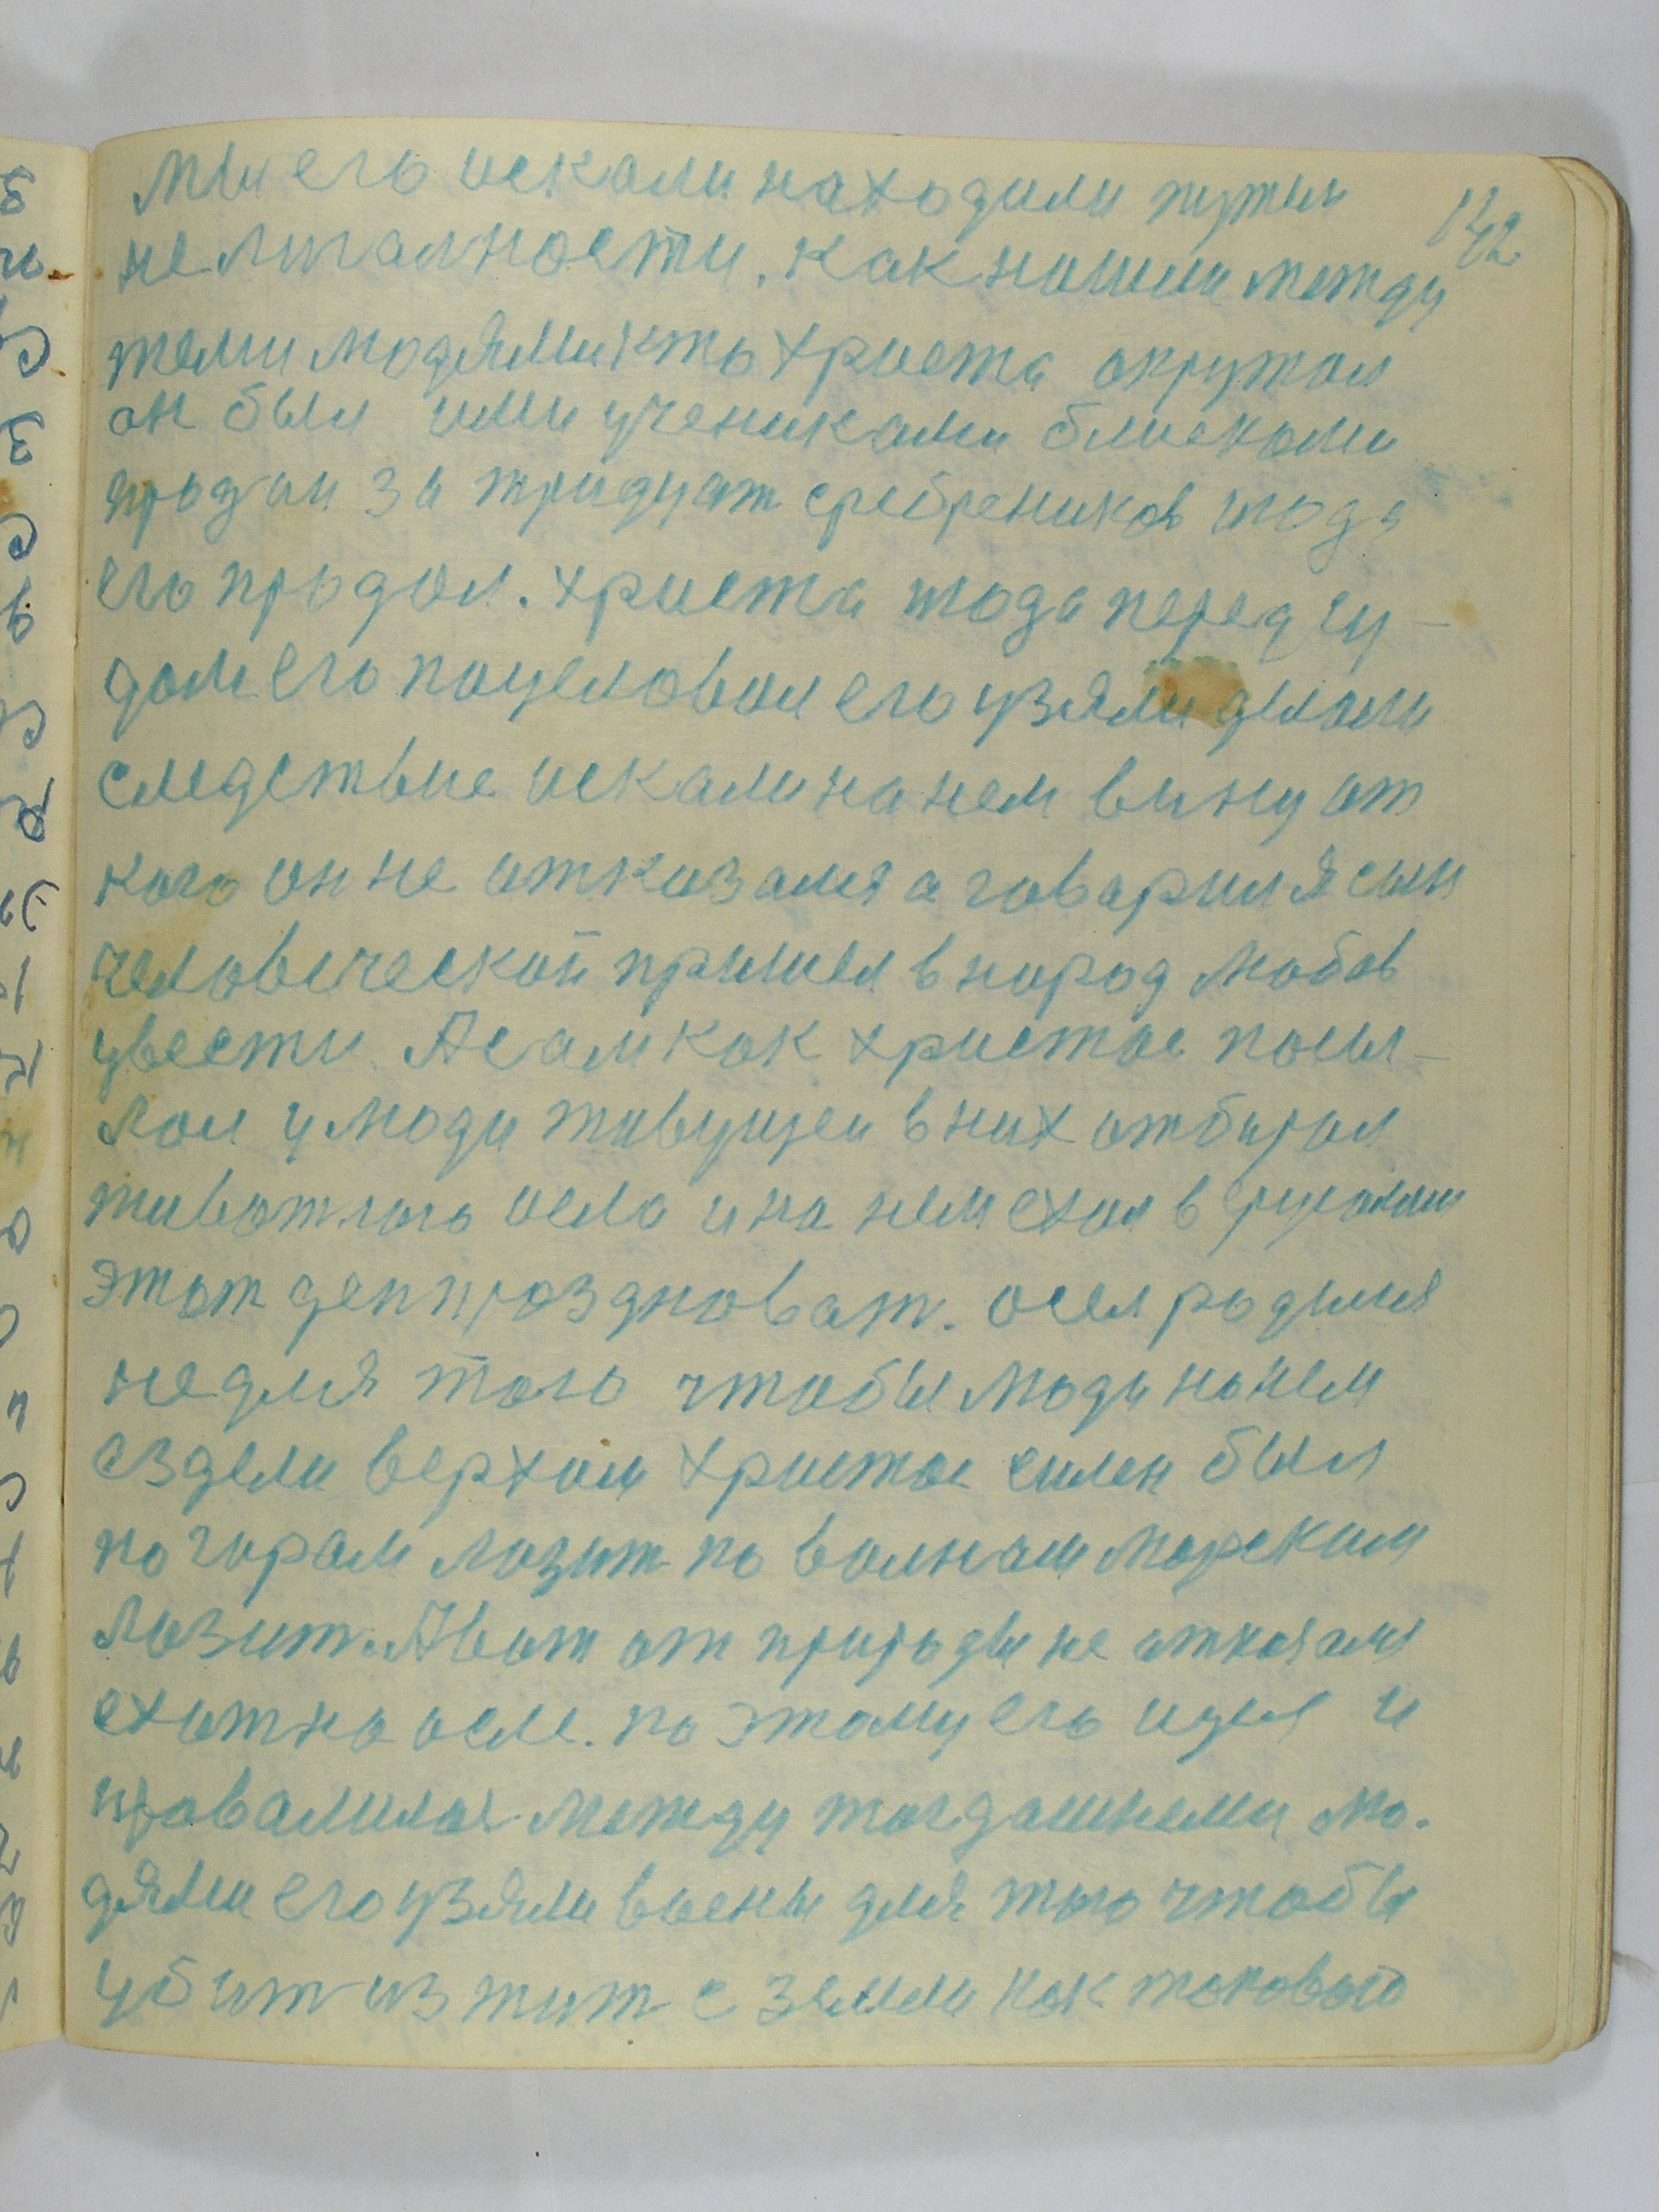 мы его искали находили путем
не лигалности. Как нашии между
теми людями кто христа окружал
он был ими учениками блискоми
продан за тридцат сребреников июда
его продал. христа июда перед су-
дом его поцеловал его узяли делали
следствие искали на нем вину от
кого он не отказался а говарил я сын
человеческой пришел в народ любов
увести. А сам как христос посы-
лал у люди живущеи в них отбирал
животного осла и на нем ехал в
этот ден праздноват. осел родился
не для того чтобы люди на нем
ездели верхом христос силен был
по горам лазит по волнам морским
лазит. А вот от природы не отказался
ехат на осле. по этому его идея и
провалилас между тогдашнеми лю-
дями его узяли воены для того чтобы
убит изжит с земли как такового